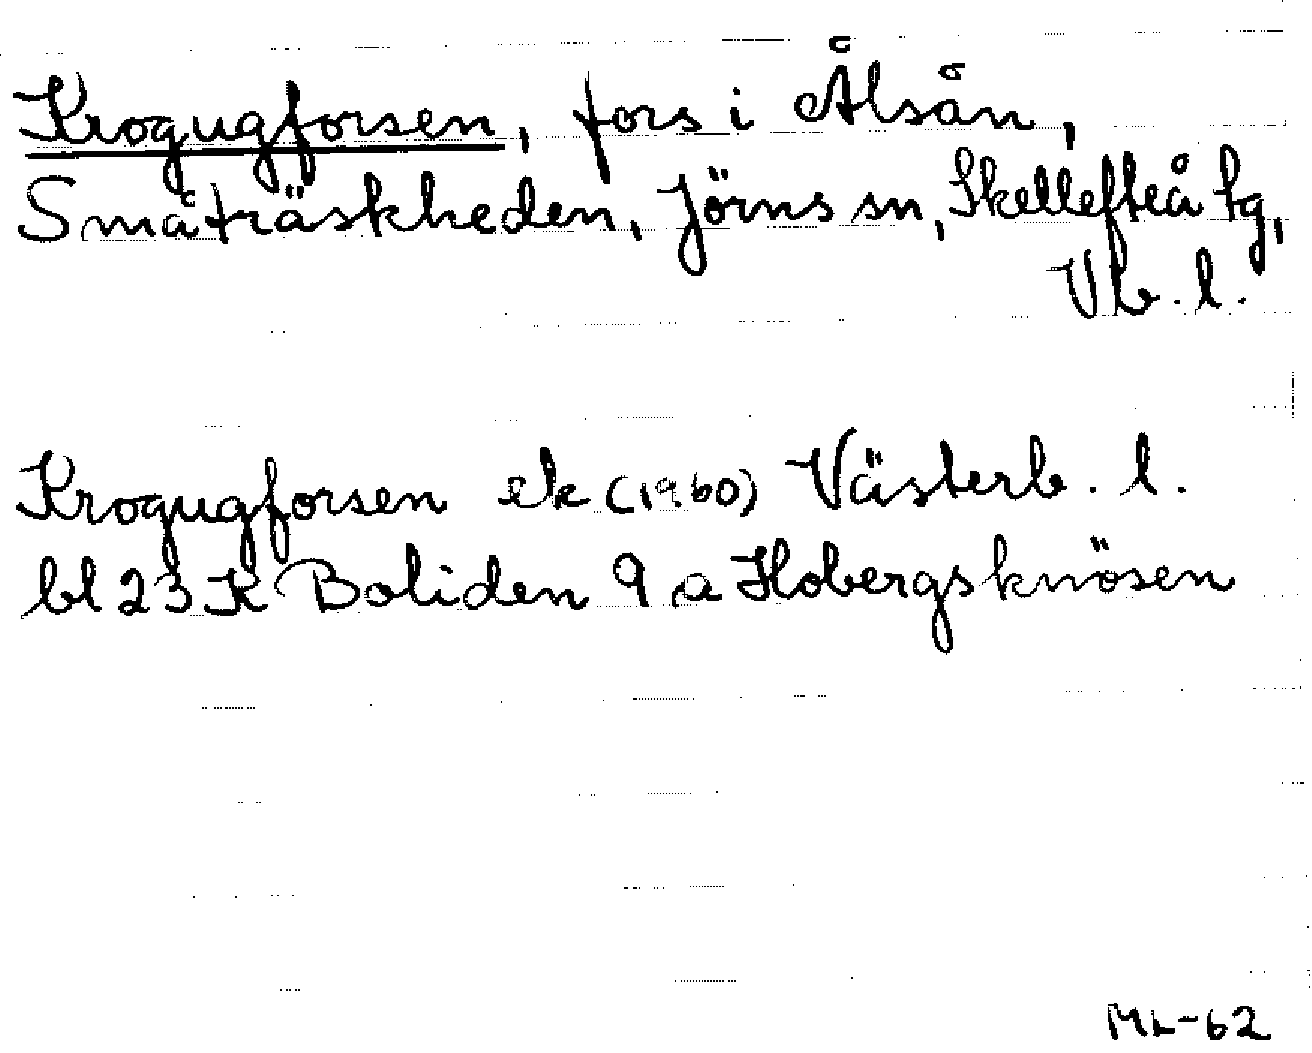 Krogugforsen, fors i Ålsån,
Småträskheden, Jörns sn, Skellefteå tg,
Vb. l.
Krogugforsen ek (1960) Västerb. l.
bl 23 K Boliden 9 a Hobergsknösen
ML-62